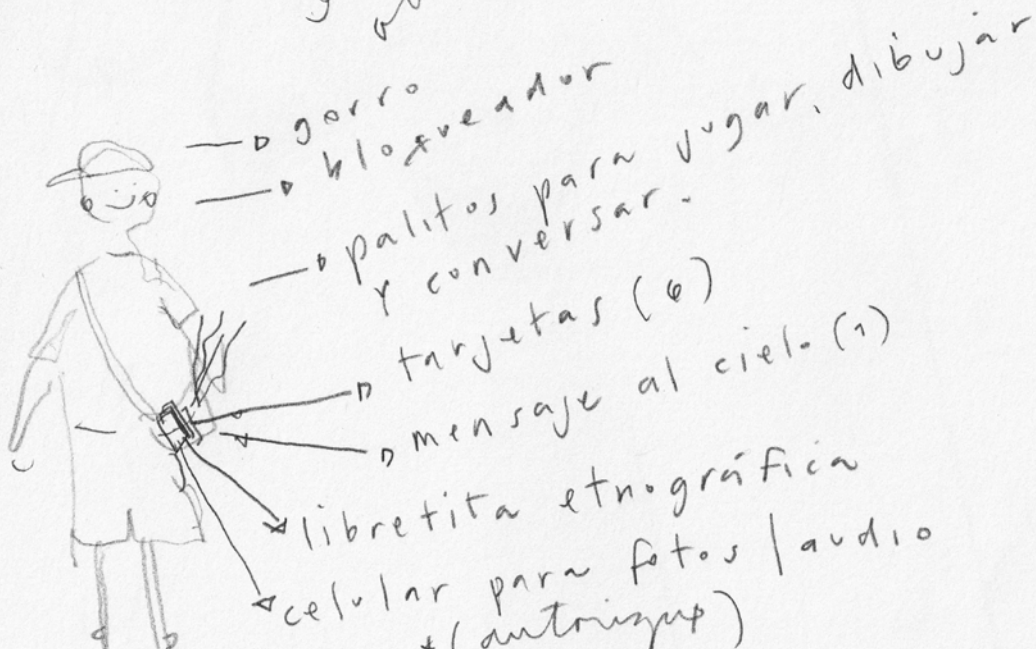 gorro
bloqueador
palitos para jugar, dibujar
y conversar.
tarjetas (6)
mensaje al cielo (1)
libretita etnográfica
celular para fotos / audio